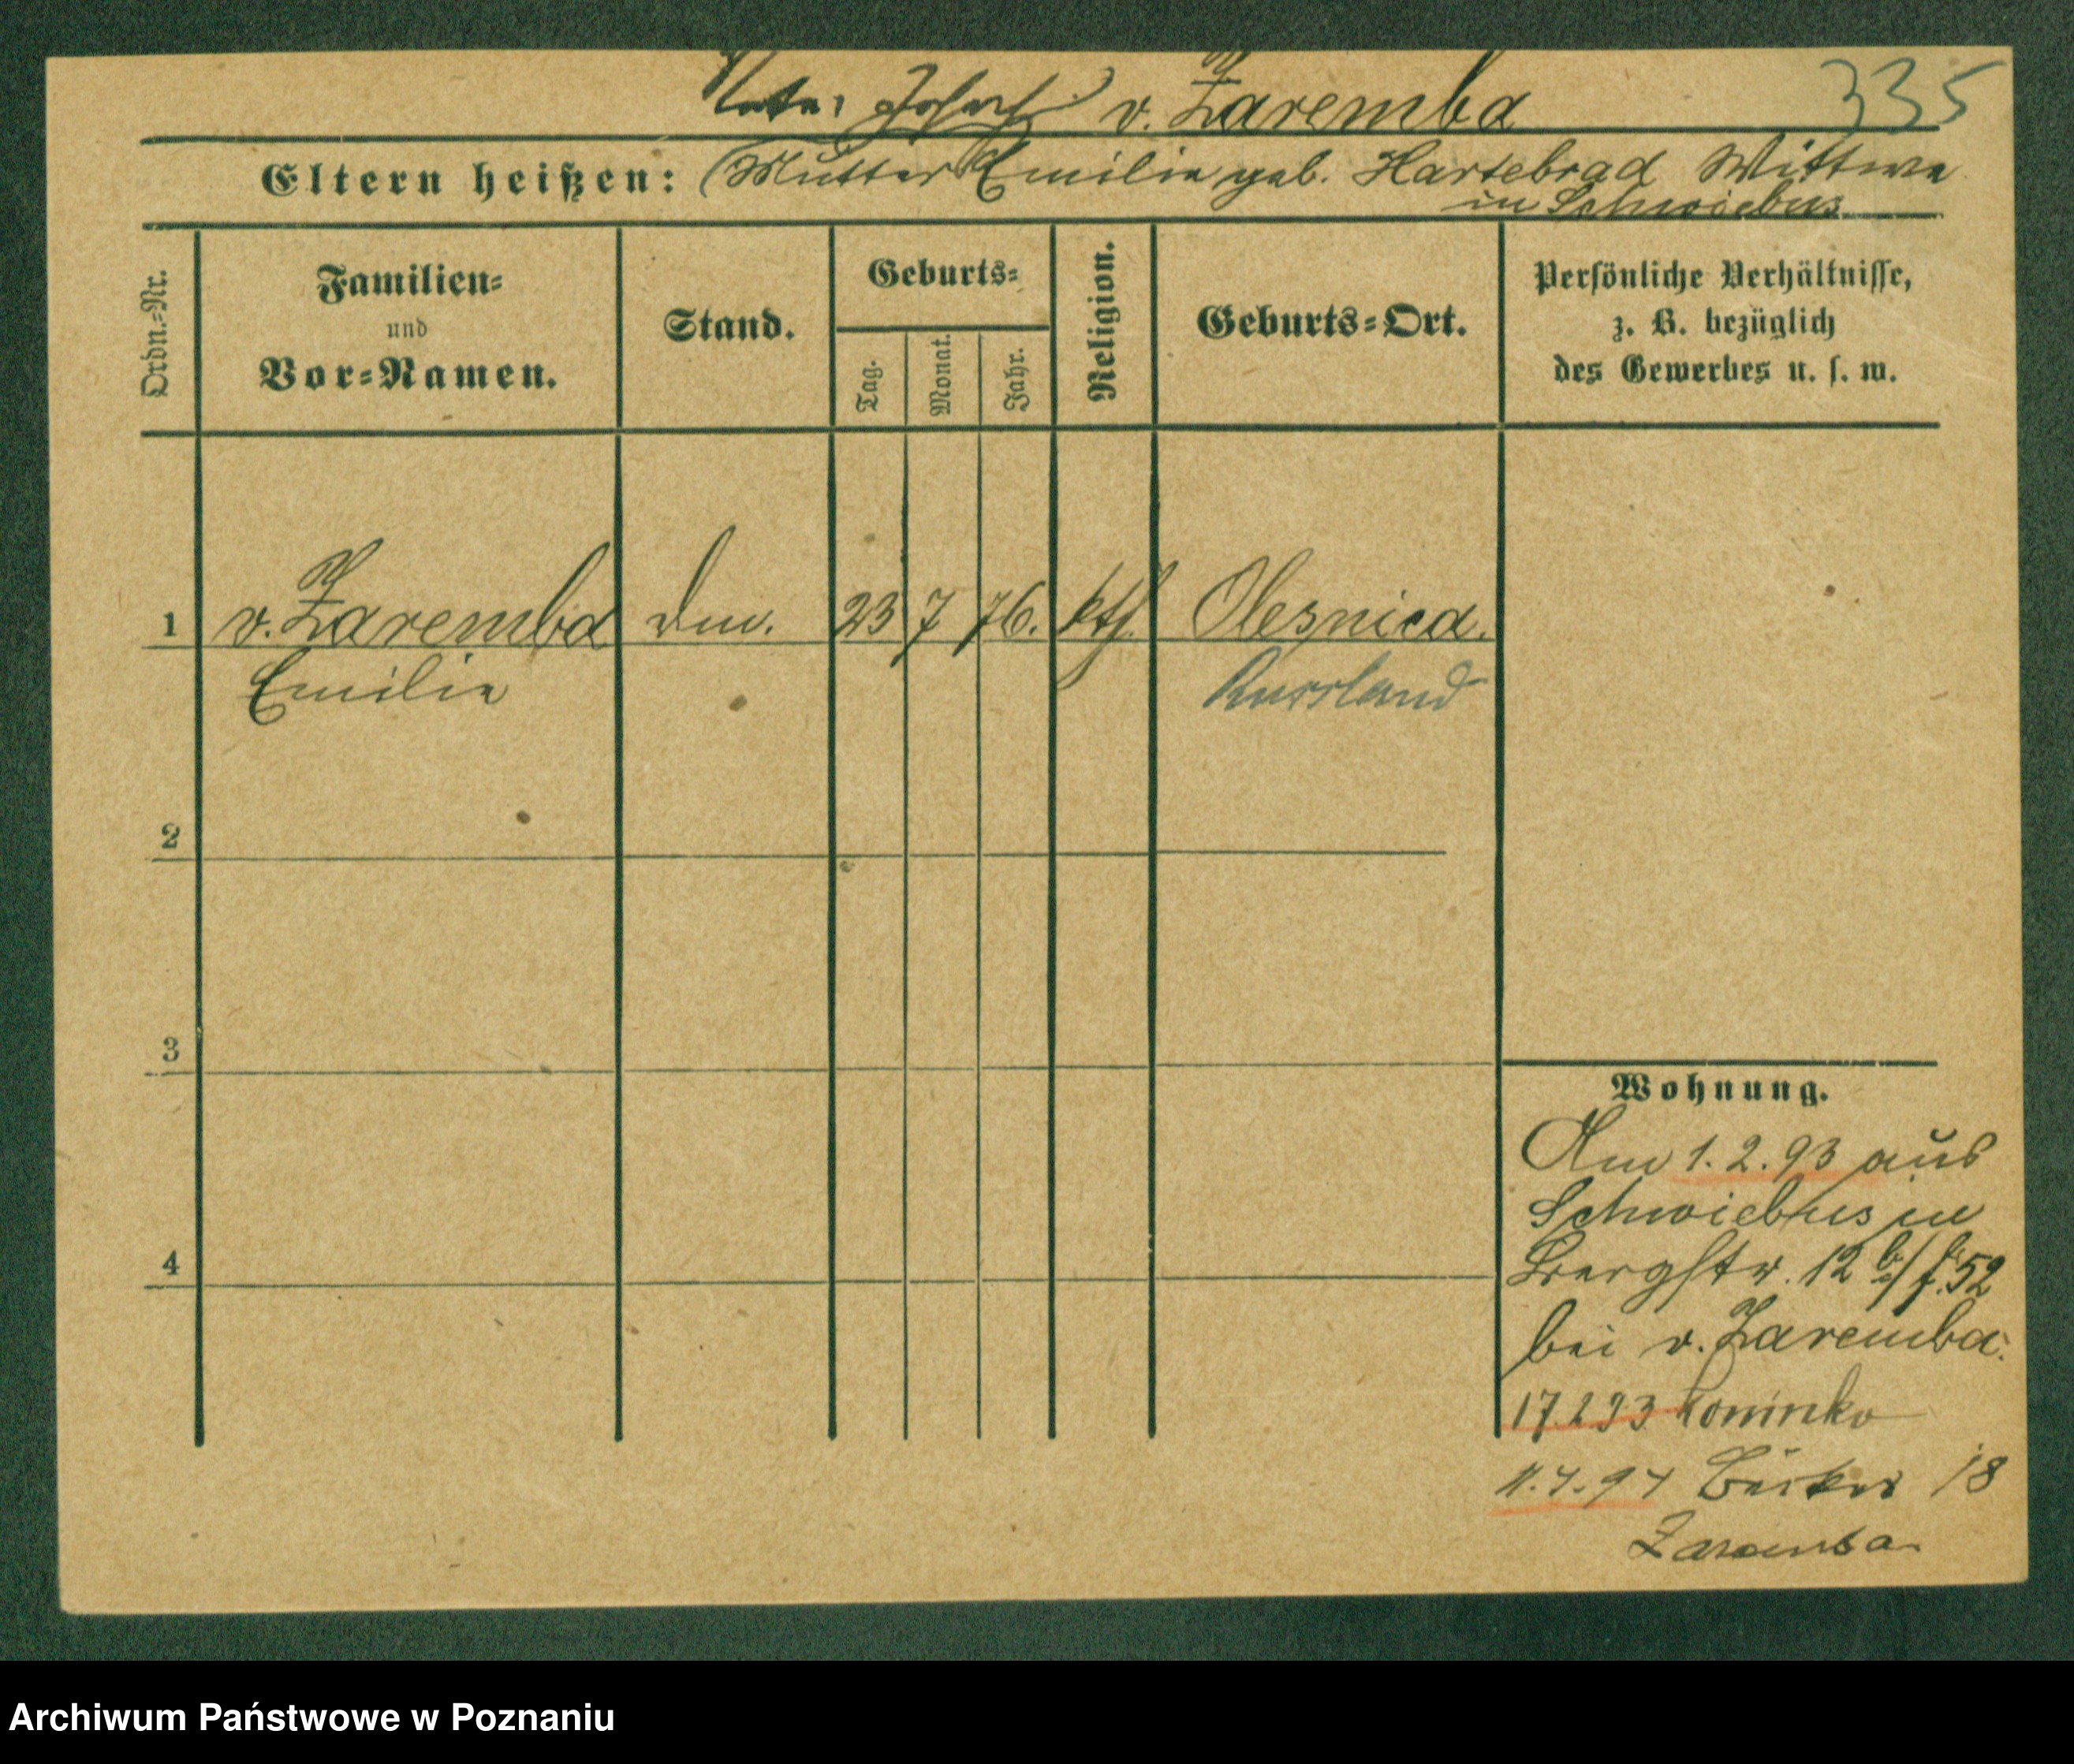 Vater Josef v. Zaremba 335
Eltern heißen: (Mutter Emilie geb. Hartebrad Wittwe
in Schwiebus
Ordn.-Nr.
Familien-
und
Vor-Namen.
Stand.
Geburts-
Tag.
Monat.
Jahr.
Religion.
Geburts-Ort.
Persönliche Verhältnisse,
z. B. bezüglich
des Gewerbes u. s. w.
1 v. Zaremba 23 7 76. kth. Olesnica.
Emilie Russland
2
3
4
Wohnung.
Am 1.2.93 aus
Schwiebus in
Bergstr. 12
bei v. Zaremba.
17.2.93 Kominko
18
Zaremba
Archiwum Państwowe w Poznaniu